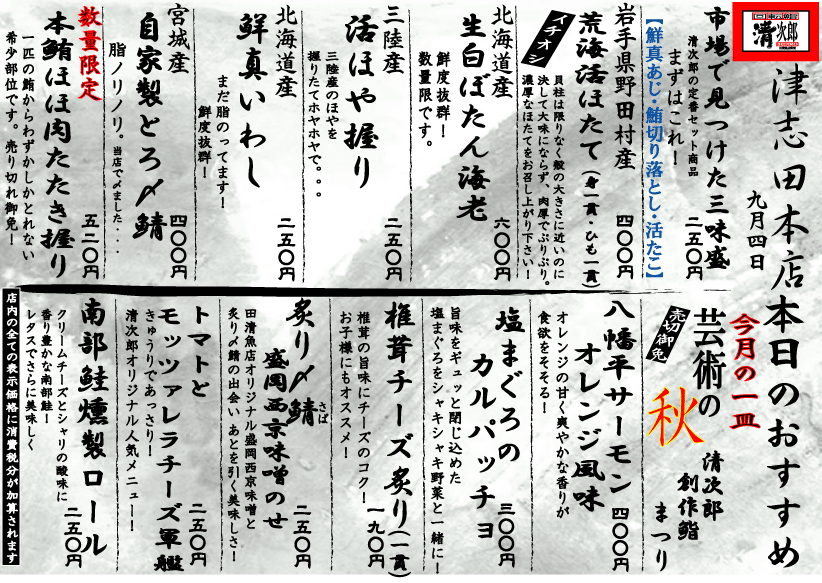 清次郎
津志田本店本日のおすすめ
九月四日
市場で見つけた三味盛
二五〇円
清次郎の定番セット商品
まずはこれ！
【鮮真あじ・鮪切り落とし・活たこ】
岩手県野田村産
イチオシ
荒海活ほたて（身一貫・ひも一貫）
四〇〇円
貝柱は限りなく殻の大きさに近いのに
決して大味にならず、肉厚でぷりぷり。
濃厚なほたてをお召し上がり下さい！
北海道産
生白ぼたん海老
六〇〇円
鮮度抜群！
数量限です。
三陸産
活ほや握り
二五〇円
三陸産のほやを
握りたてホヤホヤで。。。
北海道産
鮮真いわし
二五〇円
まだ脂のってます！
鮮度抜群！
宮城産
自家製とろ〆鯖
四〇〇円
脂ノリノリ。当店で〆ました・・・
数量限定
本鮪ほほ肉たたき握り
五二〇円
一匹の鮪からわずかしかとれない
希少部位です。売り切れ御免！
今月の一皿
芸術の
秋
売切御免
清次郎
創作鮨
まつり
八幡平サーモン
オレンジ風味
四〇〇円
オレンジの甘く爽やかな香りが
食欲をそそる！
塩まぐろの
カルパッチョ
三〇〇円
旨味をギュッと閉じ込めた
塩まぐろをシャキシャキ野菜と一緒に！
椎茸チーズ炙り（一貫）
一九〇円
椎茸の旨味にチーズのコク！
お子様にもオススメ！
炙り〆鯖
さば
盛岡西京味噌のせ
二五〇円
田清魚店オリジナル盛岡西京味噌と
炙り〆鯖の出会い あとを引く美味しさ！
トマトと
モッツァレラチーズ軍艦
二五〇円
きゅうりであっさり！
清次郎オリジナル人気メニュー！
南部鮭燻製ロール
二五〇円
クリームチーズとシャリの酸味に
香り豊かな南部鮭！
レタスでさらに美味しく
店内の全ての表示価格に消費税分が加算されます